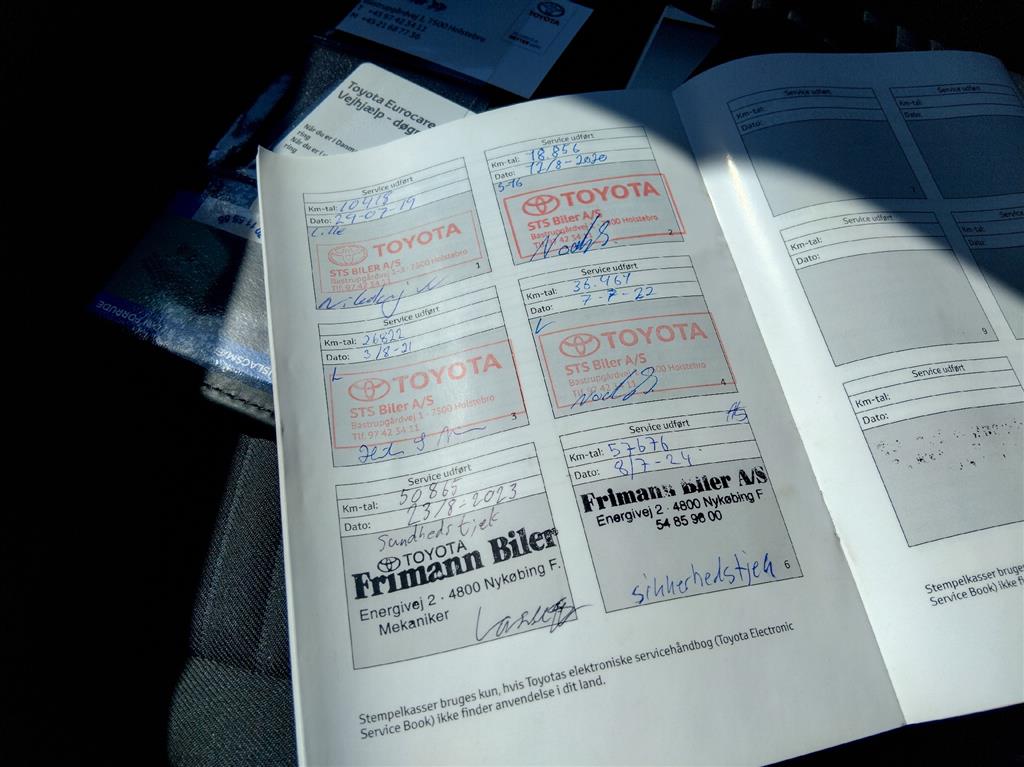 Bastrupgårdvej 1, 7500 Holstebro
+45 97 42 34 11
M +45 21 68 77 36
TOYOTA
Toyota Eurocare
Vejhjælp - døgn
Når du er i Danm
ring
Når du er i
ring
Service udført
Km-tal: 10418
Dato: 29-07-19
Lille
TOYOTA
STS BILER A/S
Bastrupgårdvej 1-3 · 7500 Holstebro
Tlf. 97 42 34 11
1
Service udført
Km-tal: 18.856
Dato: 12/8-2020
TOYOTA
STS Biler A/S
Bastrupgårdvej 1 · 7500 Holstebro
Tlf. 97 42 34 11
2
Service udført
Km-tal: 26822
Dato: 3/8-21
L
TOYOTA
STS Biler A/S
Bastrupgårdvej 1 · 7500 Holstebro
Tlf. 97 42 34 11
3
Service udført
Km-tal: 36.467
Dato: 7-7-22
L
TOYOTA
STS Biler A/S
Bastrupgårdvej 1 · 7500 Holstebro
Tlf. 97 42 34 11
4
Service udført
Km-tal: 50865
Dato: 23/8-2023
Sundhedstjek
TOYOTA
Frimann Biler
Energivej 2 · 4800 Nykøbing F.
Mekaniker
Service udført
Km-tal: 57676
Dato: 8/7-24
Frimann Biler A/S
Energivej 2 · 4800 Nykøbing F
54 85 96 00
sikkerhedstjek
6
Stempelkasser bruges kun, hvis Toyotas elektroniske servicehåndbog (Toyota Electronic
Service Book) ikke finder anvendelse i dit land.
Service udført
Km-tal:
Dato:
7
Service udført
Km-tal:
Dato:
Service udført
Km-tal:
Dato:
9
Service udført
Km-tal:
Dato:
Service udført
Km-tal:
Dato:
Stempelkasser bruges
Service Book) ikke fin